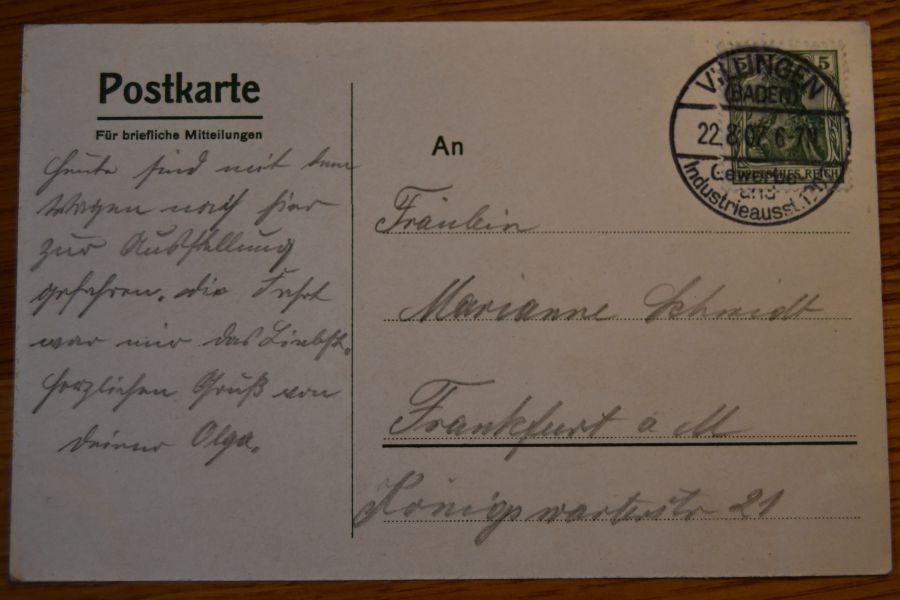 Postkarte
Für briefliche Mitteilungen
Heute sind mit dem
Wagen nach hier
zur Ausstellung
gefahren. Die Fahrt
war mir das Liebste.
Herzlichen Gruß von
Deiner Olga.
An
Fräulein
Marianne Schmidt
Frankfurt a M
Königswarterstr 21
5 5
DEUTSCHES REICH
VILLINGEN
(BADEN)
22.8.07. 6-7N
Gewerbe-
und
Industrieausst.